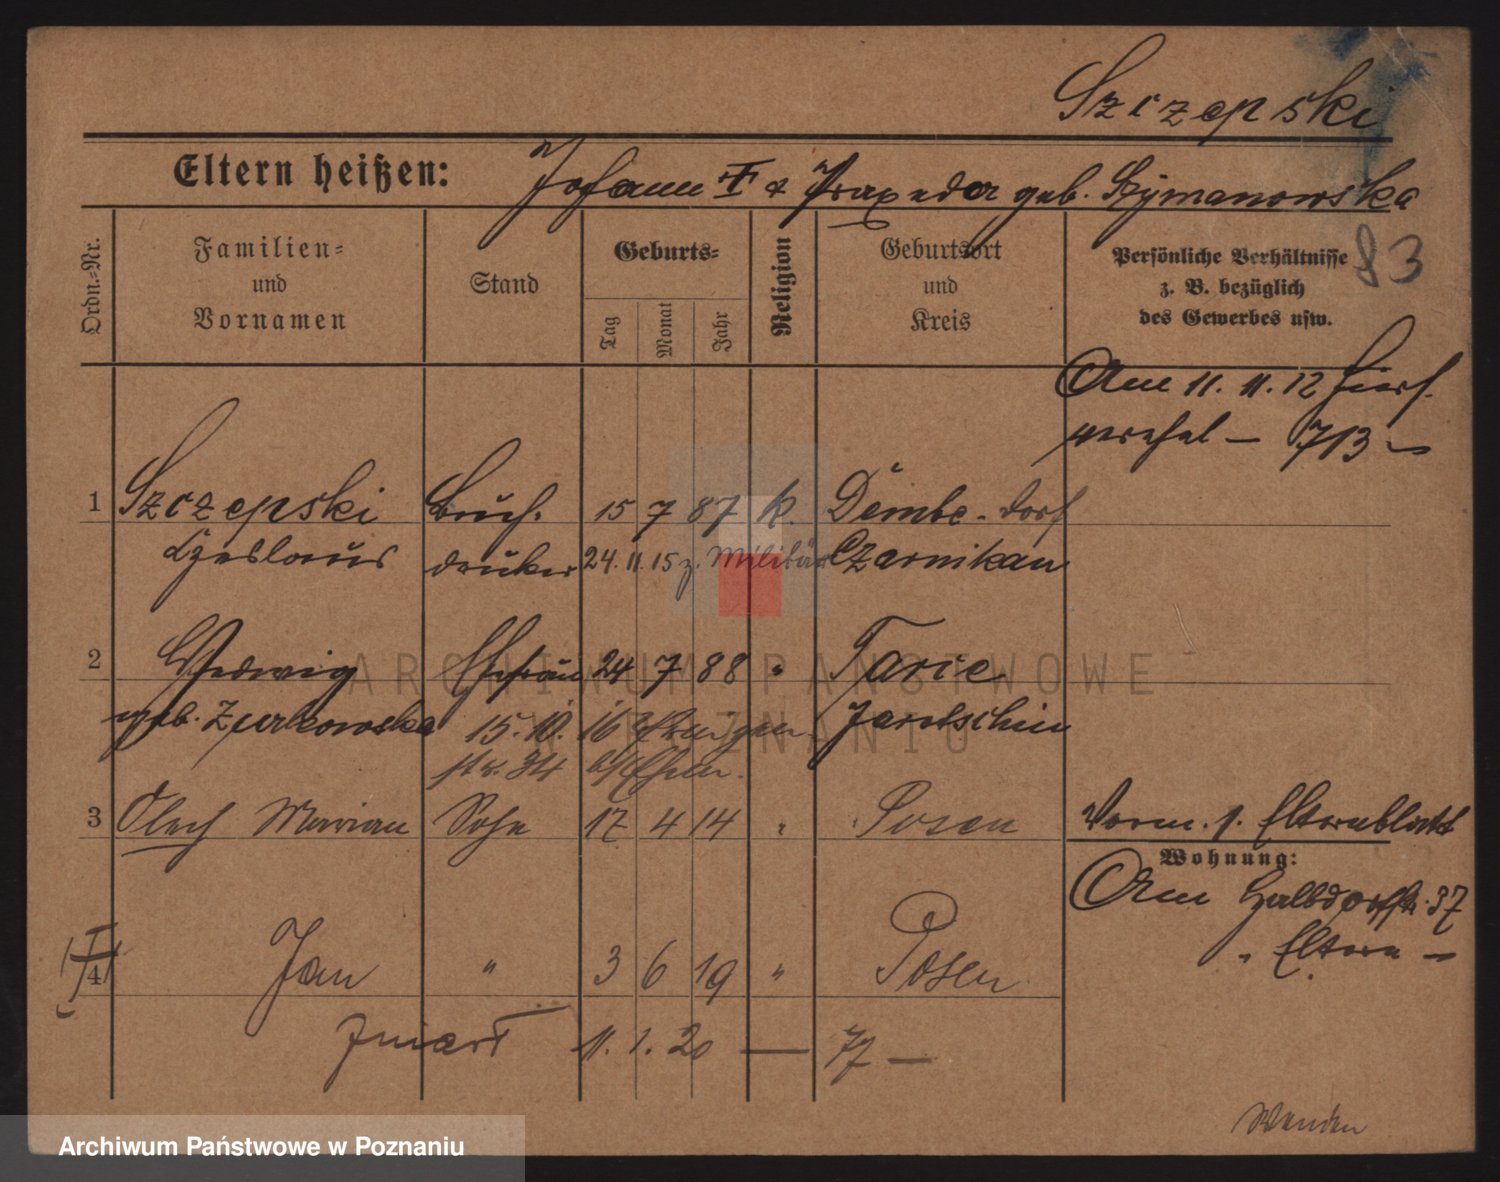 Szczepski
Eltern heißen: Johann † & Praxeda geb. Szymanowska
83
Ordn.-Nr.
Familien- und Vornamen
Stand
Geburts-
Tag
Monat
Jahr
Religion
Geburtsort und Kreis
Persönliche Verhältnisse z. B. bezüglich des Gewerbes usw.
Am 11. 11. 12 hier
713
1 Szczepski Buch- 15 7 87 k. Dembe-dorf
Czeslaus drucker 24. 11. 15 z. Militär Czarnikau
2 Hedwig Ehefrau 24 7 88 " Tarce
geb. Zurkowska 15. 10. 16 Jarotschin
str. 34
3 Olech Marian Sohn 17 4 14 " Posen
Vorm. s. Elternblatt
Wohnung:
Am Halbdorfstr. 37
" Eltern —
4 Jan " 3 6 19 " Posen
zmarł 11. 1. 20 — 77 —
Wenden
ARCHIWUM PAŃSTWOWE
W POZNANIU
Archiwum Państwowe w Poznaniu